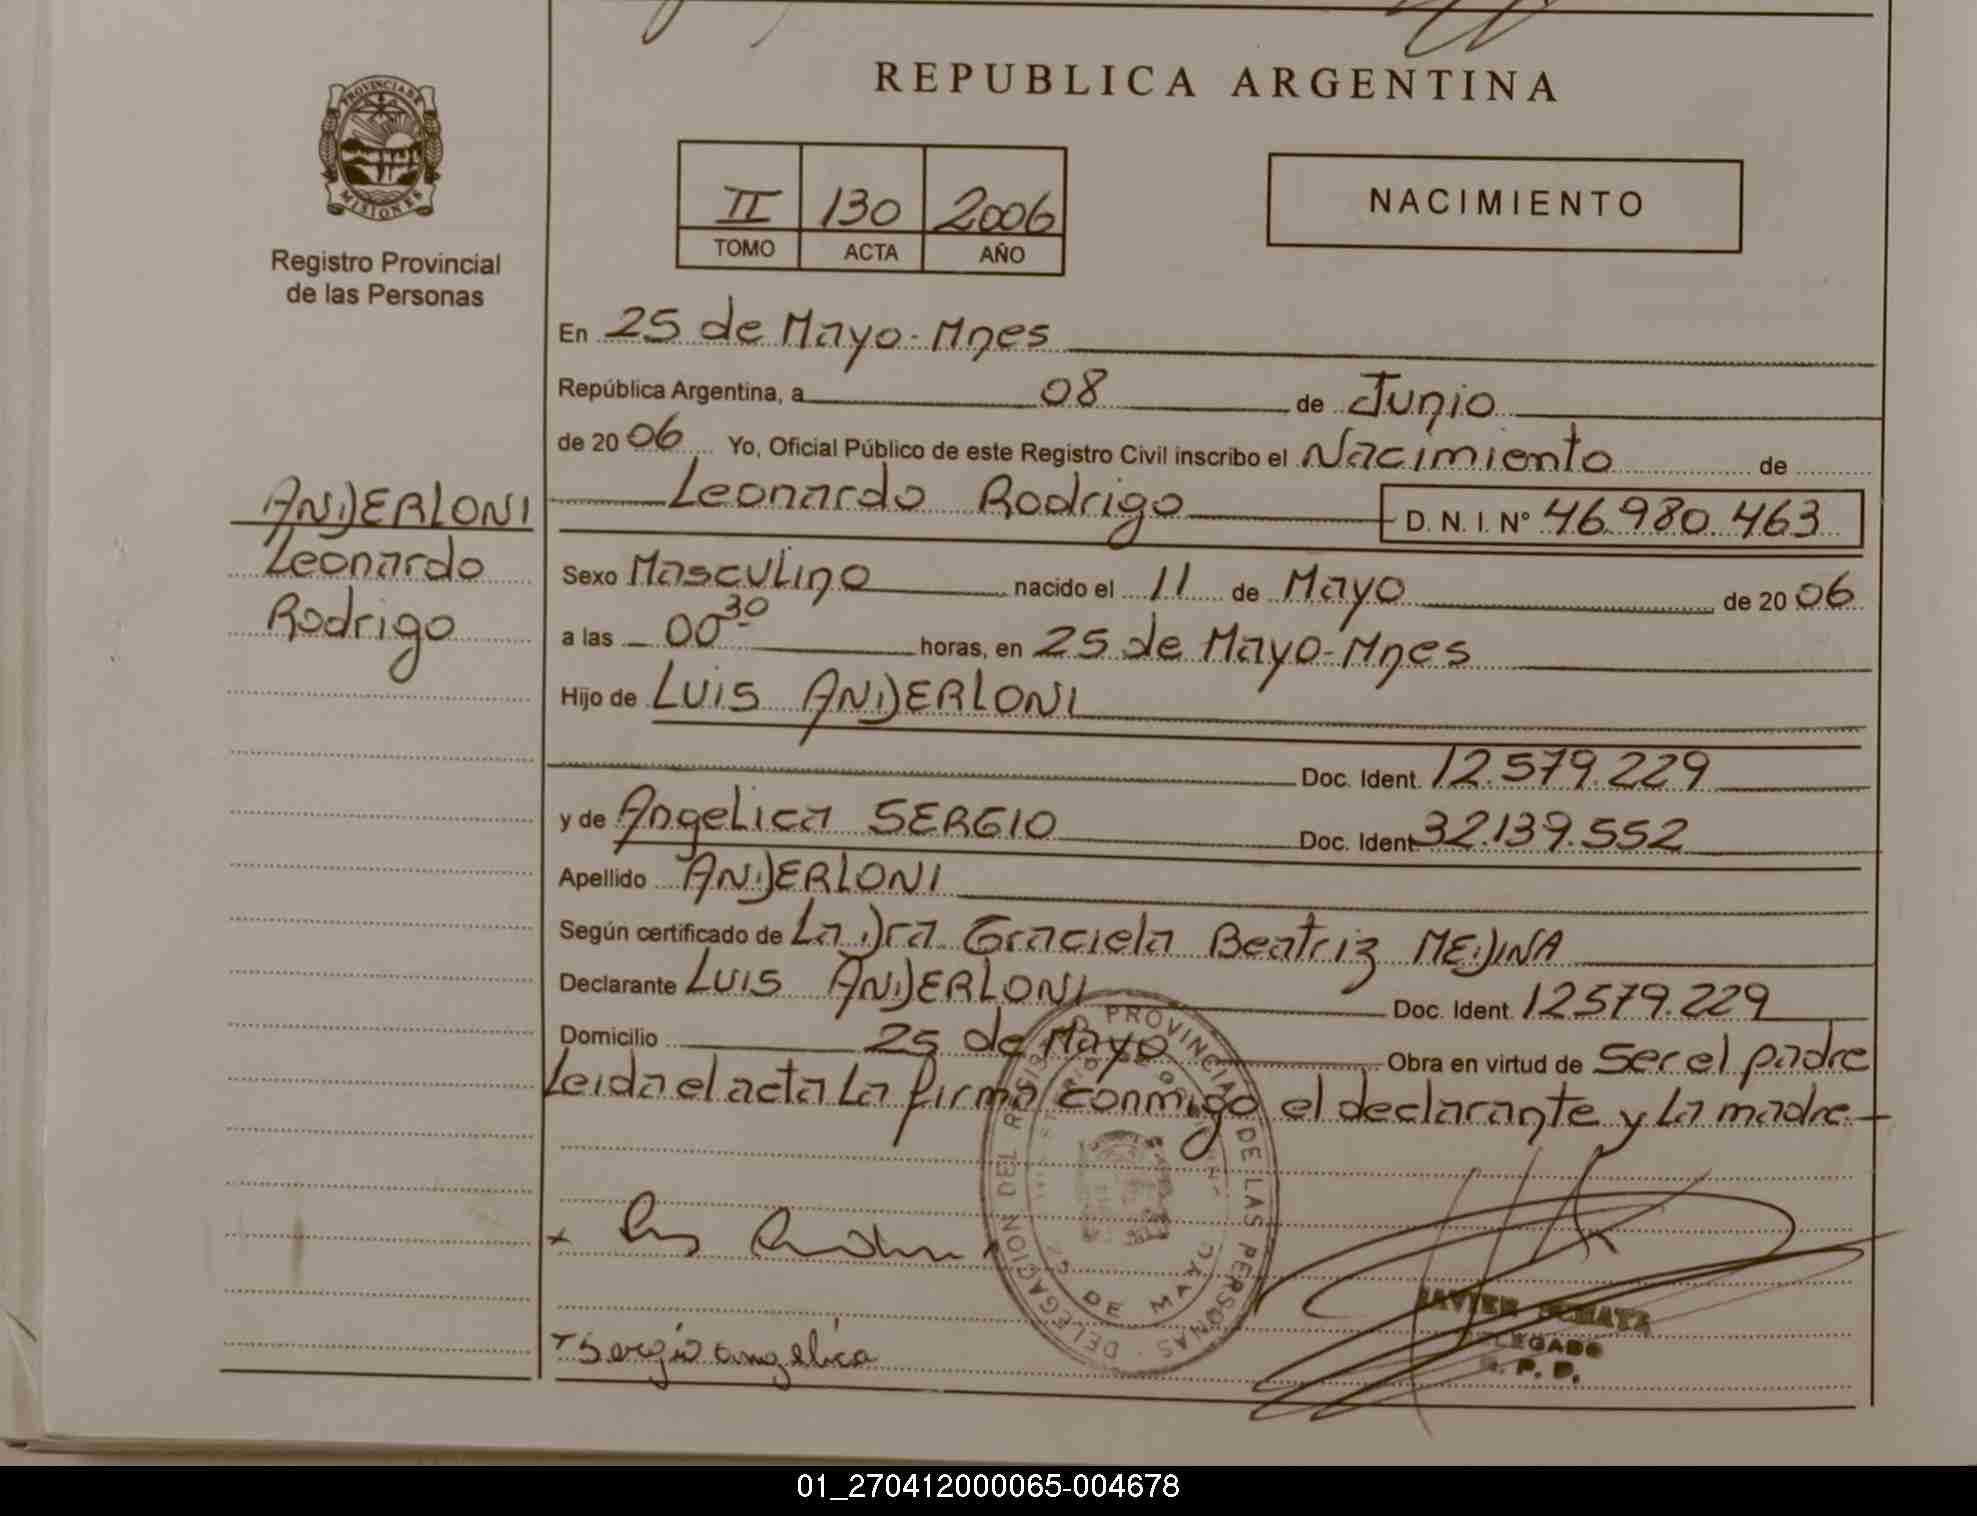 REPUBLICA ARGENTINA
PROVINCIA DE
MISIONES
Registro Provincial
de las Personas
II 130 2006
TOMO ACTA AÑO
NACIMIENTO
En 25 de Mayo-Mnes
República Argentina, a 08 de Junio
de 2006 Yo, Oficial Público de este Registro Civil inscribo el Nacimiento de
Leonardo Rodrigo D. N. I. N° 46.980.463
ANDERLONI
Leonardo
Rodrigo
Sexo Masculino nacido el 11 de Mayo de 2006
a las 00 30 horas, en 25 de Mayo-Mnes
Hijo de Luis ANDERLONI
Doc. Ident. 12.579.229
y de Angelica SERGIO Doc. Ident. 32.139.552
Apellido ANDERLONI
Según certificado de La Dra Graciela Beatriz MEDINA
Declarante Luis ANDERLONI Doc. Ident. 12579.229
Domicilio 25 de Mayo Obra en virtud de Ser el padre
Leida el acta La firma conmigo el declarante y La madre-
DELEGACION DEL REGISTRO PROVINCIAL DE LAS PERSONAS
25 DE MAYO
Sergio angelica
JAVIER
DELEGADO
R. P. P.
01_270412000065-004678